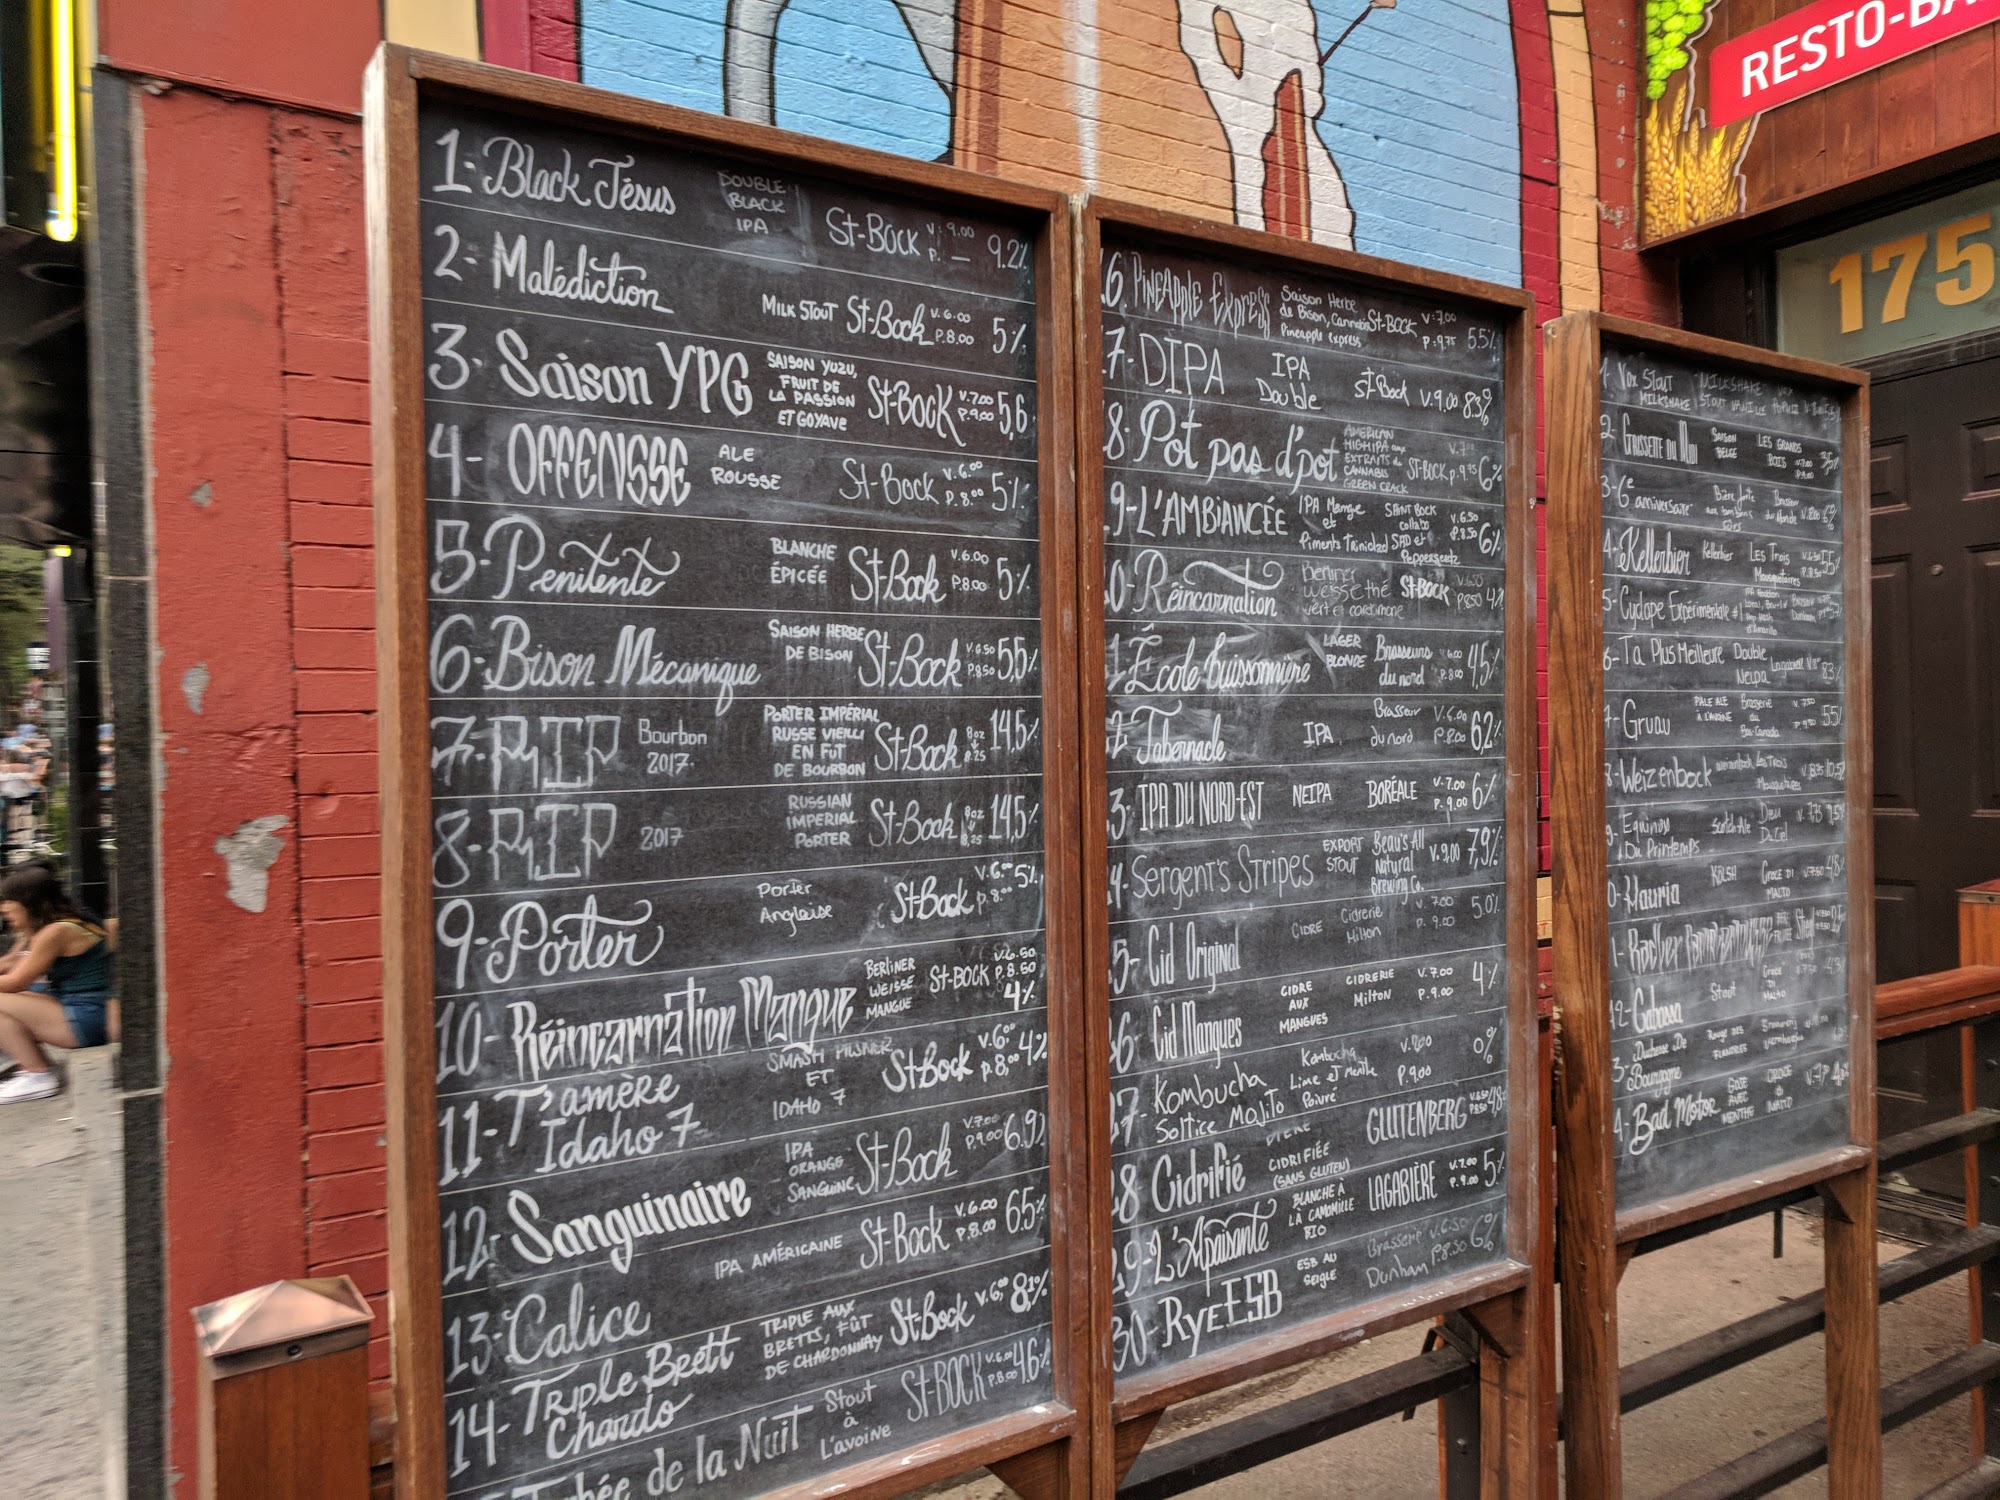 RESTO-BA
175
1- Black Jésus DOUBLE BLACK IPA St-Bock V. 9.00 P. — 9.2%
2- Malédiction MILK STOUT St-Bock V. 6.00 P. 8.00 5%
3- Saison YPG SAISON YUZU, FRUIT DE LA PASSION ET GOYAVE St-Bock V. 7.00 P. 9.00 5,6
4- OFFENSSE ALE ROUSSE St-Bock V. 6.00 P. 8.00 5%
5- Penitente BLANCHE ÉPICÉE St-Bock V. 6.00 P. 8.00 5%
6- Bison Mécanique SAISON HERBE DE BISON St-Bock V. 6.50 P. 8.50 5,5%
7- RIP Bourbon 2017 PORTER IMPÉRIAL RUSSE VIEILLI EN FÛT DE BOURBON St-Bock 8oz 8.25 14,5%
8- RIP 2017 RUSSIAN IMPERIAL PORTER St-Bock 8oz 8.25 14,5%
9- Porter Porter Anglaise St-Bock V. 6.00 P. 8.00 5%
10- Réincarnation Mangue BERLINER WEISSE MANGUE St-Bock V. 6.50 P. 8.50 4%
11- T'amère Idaho 7 SMASH PILSNER ET IDAHO 7 St-Bock V. 6.00 P. 8.00 4%
12- Sanguinaire IPA ORANGE SANGUINE St-Bock V. 7.00 P. 9.00 6.9%
13- Calice IPA AMÉRICAINE St-Bock V. 6.00 P. 8.00 6.5%
14- Triple Brett Chardo TRIPLE AUX BRETTS, FÛT DE CHARDONNAY St-Bock V. 6.00 8,1%
bée de la Nuit Stout à L'avoine St-Bock V. 6.00 P. 8.00 4.6%
6. Pineapple Express Saison Herbe de Bison, Cannabis Pineapple express St-Bock V. 7.00 P. 9.75 5.5%
7- DIPA IPA Double St-Bock V. 9.00 8.3%
8- Pot pas d'pot AMERICAN HIGH IPA aux EXTRAITS de CANNABIS GREEN CRACK St-Bock V. 7.00 P. 9.75 6%
9- L'AMBIANCÉE IPA Mangue et Piments Trinidad SAINT BOCK collabo SAD et Pepperseetz V. 6.50 P. 8.50 6%
0- Réincarnation Berliner Weisse thé vert et cardamone St-Bock V. 6.50 P. 8.50 4%
1- École buissonnière LAGER BLONDE Brasseurs du nord 6.00 P. 8.00 4,5%
2- Tabernacle IPA Brasseur du nord V. 6.00 P. 8.00 6,2%
3- IPA DU NORD-EST NEIPA BORÉALE V. 7.00 P. 9.00 6%
4- Sergent's Stripes EXPORT STOUT Beau's All Natural Brewing Co. V. 9,00 7,9%
5- Cid Original CIDRE Cidrerie Milton V. 7.00 P. 9.00 5.0%
6- Cid Mangues CIDRE AUX MANGUES CIDRERIE Milton V. 7.00 P. 9.00 4%
27- Kombucha Soltice Mojito Kombucha Lime et Menthe Poivré V. 7.00 P. 9.00 0%
28 Cidrifié BIÈRE CIDRIFIÉE (SANS GLUTEN) GLUTENBERG V. 6.50 P. 8.50 4,8%
29- L'Apaisante BLANCHE À LA CAMOMILLE BIO LAGABIÈRE V. 7.00 P. 9.00 5%
30- Rye ESB ESB AU SEIGLE Brasserie Dunham V. 6.50 P. 8.50 6%
1- Vox Stout MILKSHAKE MILKSHAKE STOUT VANILLE
2- Grissette du Midi SAISON BELGE LES GRANDS BOIS V. 7.00 P. 9.00 3,5%
3- 6e anniversaire Bière forte Brasseur du Monde
4- Kellerbier Kellerbier Les Trois Mousquetaires V. 6.50 P. 8.50 5.5%
5- Cyclope Expérimentale #1
6- Ta Plus Meilleure Double Neipa Lagabière 8.3%
7- Gruau PALE ALE À L'AVOINE Brasserie du Bas-Canada V. 7.50 P. 9.50 5.5%
8- Weizenbock weizenbock Les Trois Mousquetaires 10,5%
9- Equinox Du Printemps Scotch Ale Dieu Du Ciel V. 7.75
0- Hauria KÖLSH GROSE DI MALTO
1- Radler
12- Gabossa Stout
3- Duchesse De Bourgogne Rouge DES FLANDRES
4- Bad Motor GOSE AVEC MENTHE